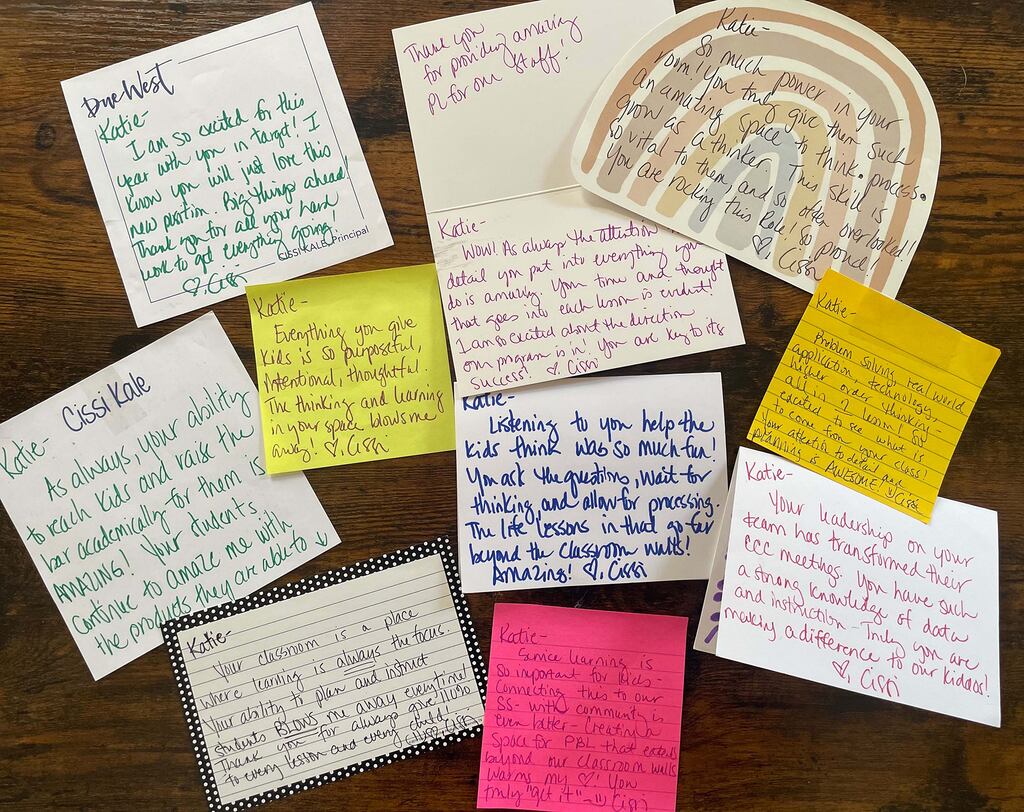 Due West
Katie-
I am so excited for this
year with you in target! I
know you will just love this
new position. Big things ahead!
Thank you for all your hard
work to get everything going!
CISSI KALE, Principal
♡, Cissi
Thank you
for providing amazing
PL for our staff!
Katie-
WOW! As always the attention
detail you put into everything you
do is amazing. Your time and thought
that goes into each lesson is evident!
I am so excited about the direction
our program is in! You are key to its
success! ♡ Cissi
Katie-
So much power in your
room! You truly give them such
an amazing space to think, process,
grow as a thinker - This skill is
so vital to them and so often overlooked!
You are rocking this Role! So proud
♡, Cissi
Katie-
Everything you give
kids is so purposeful,
intentional, thoughtful.
The thinking and learning
in your space blows me
away! ♡, Cissi
Katie-
Problem solving, real world
application, technology,
higher order thinking -
all in 1 lesson! So
excited to see what is
to come from your class!
Your attention to detail and
planning is AWESOME! Cissi
Cissi Kale
Katie-
As always, your ability
to reach kids and raise the
bar academically for them is
AMAZING! Your students
continue to amaze me with
the products they are able to ↓
Katie-
Listening to you help the
kids think was so much fun!
You ask the questions, wait for
thinking, and allow for processing.
The life lessons in that go far
beyond the classroom walls!
Amazing! ♡, Cissi
Katie-
Your leadership on your
team has transformed their
CCC meetings. You have such
a strong knowledge of data
and instruction - Truly you are
making a difference to our kiddos!
♡, Cissi
Katie-
Your classroom is a place
where learning is always the focus.
Your ability to plan and instruct
students BLOWS me away everytime!
Thank you for always give 110%
to every lesson and every child! Cissi
Katie-
Service learning is
so important for kids -
Connecting this to our
SS - with community is
even better - Creating a
space for PBL that extends
beyond our classroom walls
warms my ♡! You
truly "get it" - Cissi